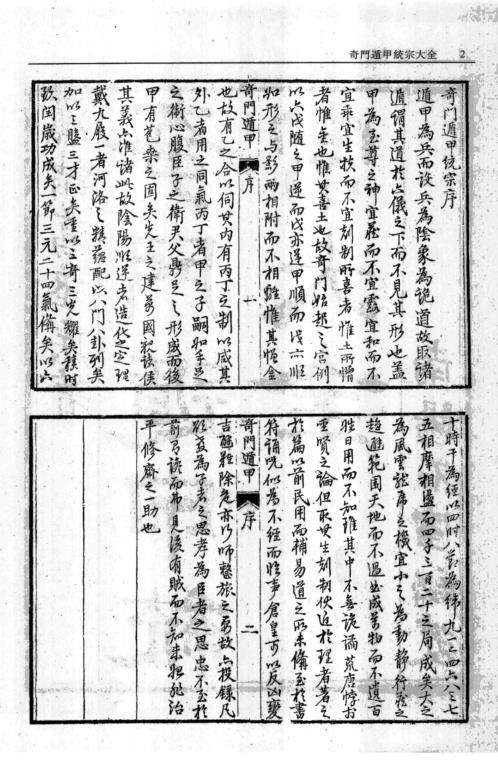 奇門遁甲統宗大全 2
奇門遁甲統宗序
遁甲為兵而設兵為陰象為詭道故取諸
遁謂其道於六儀之下而不見其形也蓋
甲為至尊之神宜藏而不宜露宜和而不
宜乖宜生扶而不宜剋制所喜者惟土所憎
者惟金也惟其喜土也故奇門始起之宮例
以六戊隨之甲逆而戊亦逆甲順而戊亦順
如形之与影兩相附而不相離惟其恒金
奇門遁甲 序 一
也故有乙之合以伺其内有丙丁之制以威其
外乙者用之同氣丙丁者甲之子嗣如手足
之衛心腹臣子之衛君父鼎足之形成而後
甲有苞桑之固矣先王之建萬國和諸侯
其義亦准諸此故陰陽順逆者造化之定理
戴九履一者河洛之精蘊配以八門八卦列矣
加以三盤三才正矣重以三奇三光耀矣積時
致閏歲功成矣一節三元二十四氣備矣以六
十時干為經以四時八節為緯九一二四六八三七
五相摩相盪而四千三百二十三局成矣大之
為風雲龍虎之機宜小之為動靜行藏之
趨避範围天地而不過曲成萬物而不遺百
姓日用而不知雖其中不無詭譎荒唐悖于
聖賢之論但取其生剋制伏近於理者著之
於篇以前民用而補易道之所未備至於書
符誦咒似為不經而臨事倉皇可以反凶變
奇門遁甲 序 二
吉醢難除危亦行師整旅之要故亦投錄凡
以益為子者之思孝為臣者之思忠不至於
前有讒而弗見後有賊而不知未始非治
平修齊之一助也